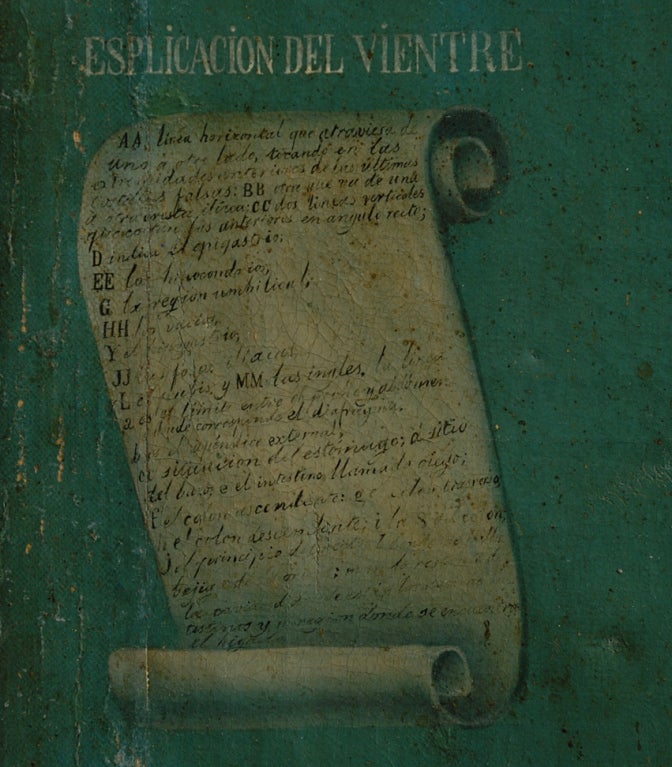 ESPLICACION DEL VIENTRE
AA, linea horizontal que atraviesa de
uno á otro lado, tocando en las
estremidades anteriores de las últimas
costillas falsas: BB otra que va de una
á otra cresta iliaca: CC dos lineas verticales
que cortan las anteriores en angulo recto;
D indica el epigastrio;
EE los hipocondrios;
G la region umbilical;
HH los vacios;
Y el hipogastrio;
JJ las fosas iliacas
L el pubis, y MM las ingles. la linea
a es el limite entre el pecho y abdomen
donde corresponde el diafragma.
b es el apéndice external;
situacion del estomago; d sitio
del bazo; e el intestino llamado ciego;
el colon ascendente:
h el colon descendente; i la S del colon;
j el principio del
vejiga de
la cavidad
y region donde se encuentra
el